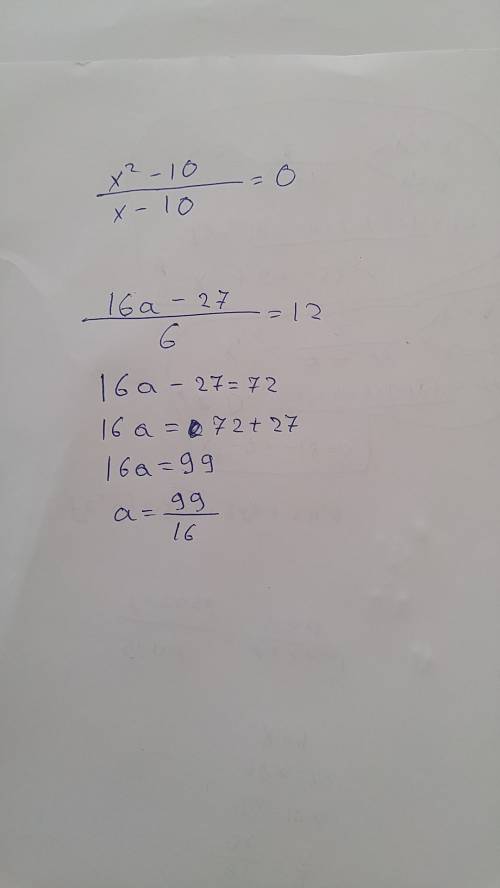 x² - 10
x - 10
= 0
16a - 27
6
= 12
16a - 27 = 72
16a = 72 + 27
16a = 99
a = 99
16